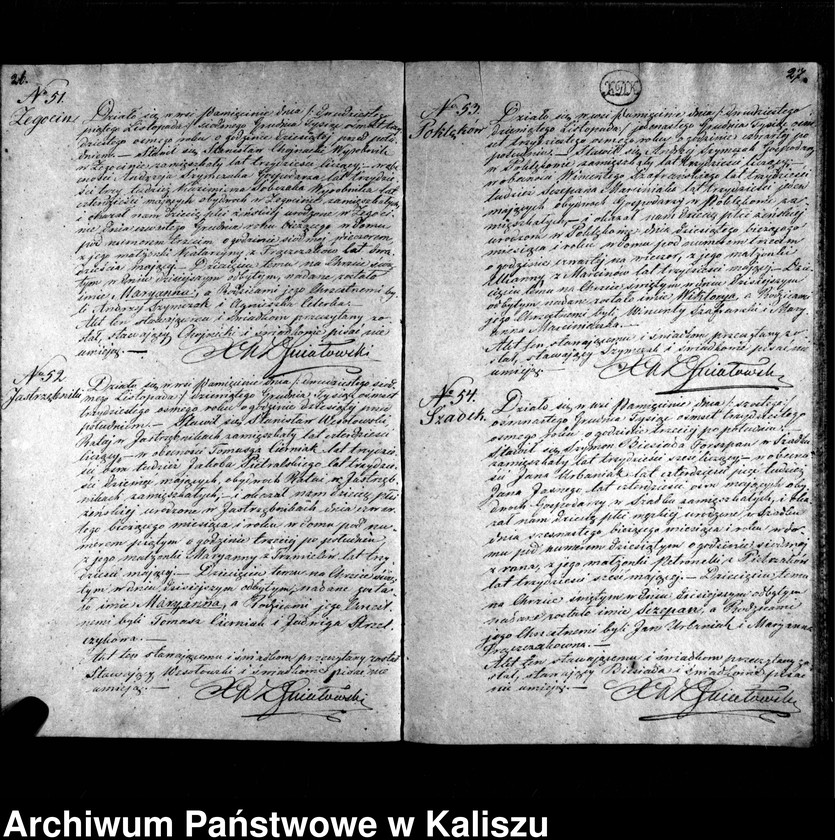 26.
No 51.
Żegocin
Działo się w wsi Pamięcinie dnia / Dwudziestego
piątego Listopada / siódmego Grudnia Tysiąc ośmset trzy
dziestego osmego roku o godzinie dziesiątej przed połu
dniem. — Stawił się Stanisław Wyrobnik
w Żegocinie zamieszkały lat trzydzieści liczący, — w obe
cności Andrzeja Szymczaka Gospodarza lat trzydzie
ści trzy tudzież Kazimierza Wyrobnika lat
czterdzieści mających obydwóch w Żegocinie zamieszkałych
i okazał nam dziecię płci żeńskiej urodzone w Żegoci
nie dnia czwartego Grudnia roku bieżącego w domu
pod numerem trzecim o godzinie siódmej wieczorem
z jego małżonki Katarzyny z lat dwa
dzieścia mającej. — Dziecięciu temu na Chrzcie świę
tym w dniu dzisiejszym odbytym, nadane zostało
imie Maryanna, a Rodzicami jego Chrzestnemi by
li Andrzej Szymczak i Agnieszka
Akt ten stawającemu i świadkom przeczytany zo
stał, stawający i świadkowie pisać nie
umieją. —
No 52.
Jastrzębniki
Działo się w wsi Pamięcinie dnia / dwudziestego siód
mego Listopada / dziewiątego Grudnia / Tysiąc ośmset
trzydziestego osmego roku o godzinie dziesiątej przed
południem. — Stawił się Stanisław Wesołowski
Rataj w Jastrzębnikach zamieszkały lat czterdzieści
liczący, — w obecności Tomasza Cierniak lat trzydzie
ści osm tudzież Jakoba Pietralskiego lat trzydzie
ści dziewięć mających, obydwóch Ratai w Jastrzęb
nikach zamieszkałych, — i okazał nam dziecię płci
żeńskiej urodzone w Jastrzębnikach dnia czwar
tego bieżącego miesiąca i roku w domu pod nu
merem piątym o godzinie trzeciej po południu,
z jego małżonki Maryanny z lat trzy
dzieści mającej. — Dziecięciu temu na Chrzcie świę
tym w dniu dzisiejszym odbytym, nadane zosta
ło imie Maryanna, a Rodzicami jego Chrzest
nemi byli Tomasz Cierniak i Jadwiga Strzel
czykowa. —
Akt ten stawającemu i świadkom przeczytany został
Stawający Wesołowski i świadkowie pisać nie
umieją. —
27.
No 53.
Poklęków
Działo się w wsi Pamięcinie dnia / dwudziestego
dziewiątego Listopada / jedenastego Grudnia Tysiąc ośm
set trzydziestego osmego roku o godzinie czwartej po
południu. — Stawił się Andrzej Szymczak Gospodarz
w Poklękowie zamieszkały lat trzydzieści liczący, —
w obecności Wincentego Szafrańskiego lat trzydzieści
tudzież Szczepana Marciniaka lat trzydzieści jeden
mających obydwóch Gospodarzy w Poklękowie za
mieszkałych, — i okazał nam dziecię płci żeńskiej
urodzone w Poklękowie dnia dziesiątego bieżącego
miesiąca i roku w domu pod numerem trzecim
o godzinie czwartej na wieczór, z jego małżonki
Maryanny z Marcinów lat trzydzieści mającej. — Dzie
cięciu temu na Chrzcie świętym w dniu dzisiejszym
odbytym nadane zostało imie Wiktorya, a Rodzicami
jego Chrzestnemi byli, Wincenty Szafrański i Mary
anna Marciniacka. —
Akt ten stawającemu i świadkom przeczytany zo
stał, stawający Szymczak i świadkowie pisać nie
umieją. —
No 54.
Szadek
Działo się w wsi Pamięcinie dnia / szóstego /
ośmnastego Grudnia Tysiąc ośmset trzydziestego
osmego roku o godzinie trzeciej po południu. —
Stawił się Szymon Biesiada Gospodarz w Szadku
zamieszkały lat trzydzieści sześć liczący, — w obecno
ści Jana Urbaniak lat czterdzieści pięć tudzież
Jana Jasnego lat czterdzieści osm mających oby
dwóch Gospodarzy w Szadku zamieszkałych, i oka
zał nam dziecię płci męskiej urodzone w Szadku
dnia szesnastego bieżącego miesiąca i roku w do
mu pod numerem dziesiątym o godzinie siódmej
z rana, z jego małżonki Petronelli z Pietrzaków
lat trzydzieści sześć mającej. — Dziecięciu temu
na Chrzcie świętym w dniu dzisiejszym odbytym
nadane zostało imie Szczepan, a Rodzicami
jego Chrzestnemi byli Jan Urbaniak i Maryanna
Akt ten stawającemu i świadkom przeczytany zo
stał, stawający Biesiada i świadkowie pisać
nie umieją. —
Archiwum Państwowe w Kaliszu